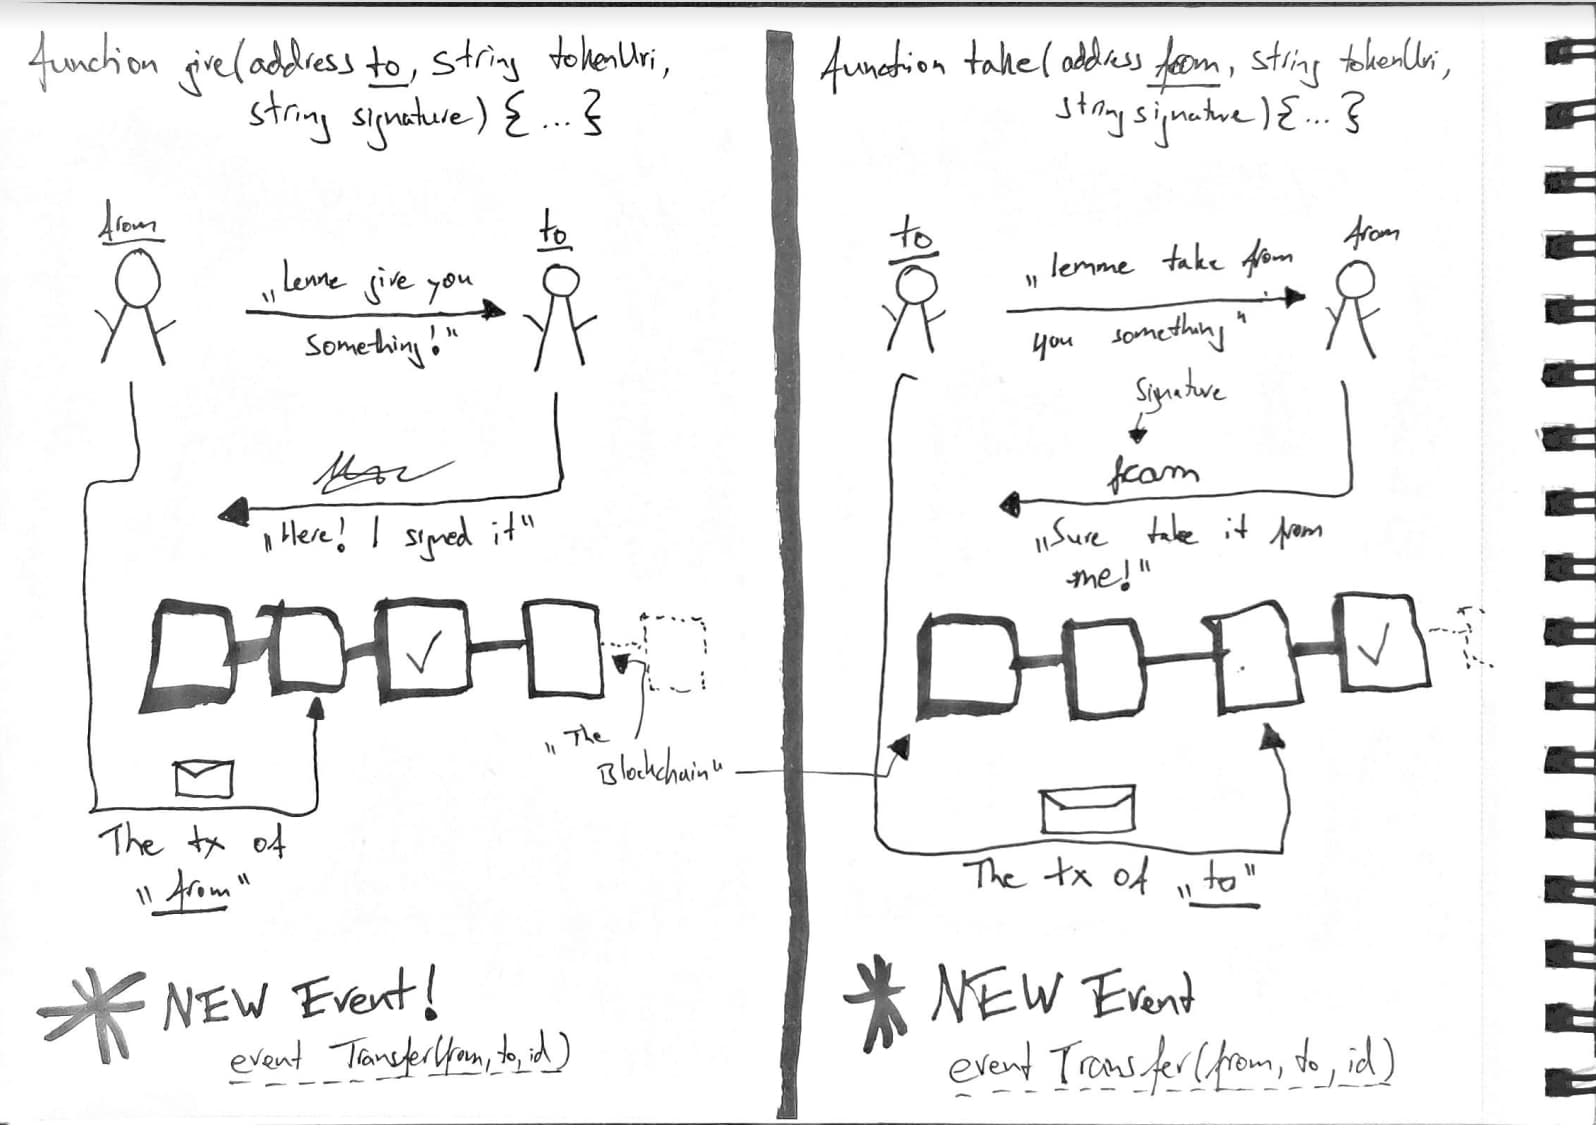 function give(address to, string tokenUri,
string signature) { ... }
from
to
„Lemme give you
something!"
„Here! I signed it"
„The
Blockchain"
The tx of
„from"
NEW Event!
event Transfer(from, to, id)
function take(address from, string tokenUri,
string signature) { ... }
to
from
„lemme take from
you something"
Signature
from
„Sure take it from
me!"
The tx of „to"
NEW Event
event Transfer(from, to, id)